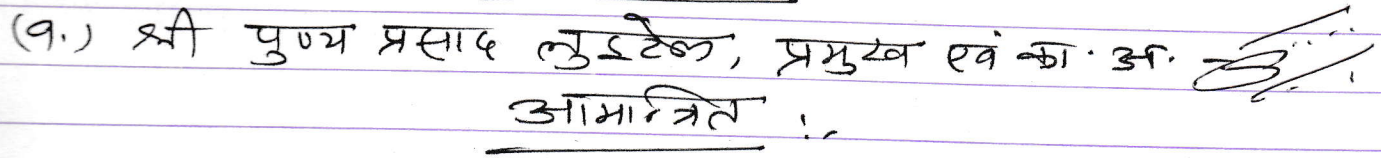 (१.) श्री पुण्य प्रसाद लुइटेल, प्रमुख एवं का. अ.
आमान्त्रित :-